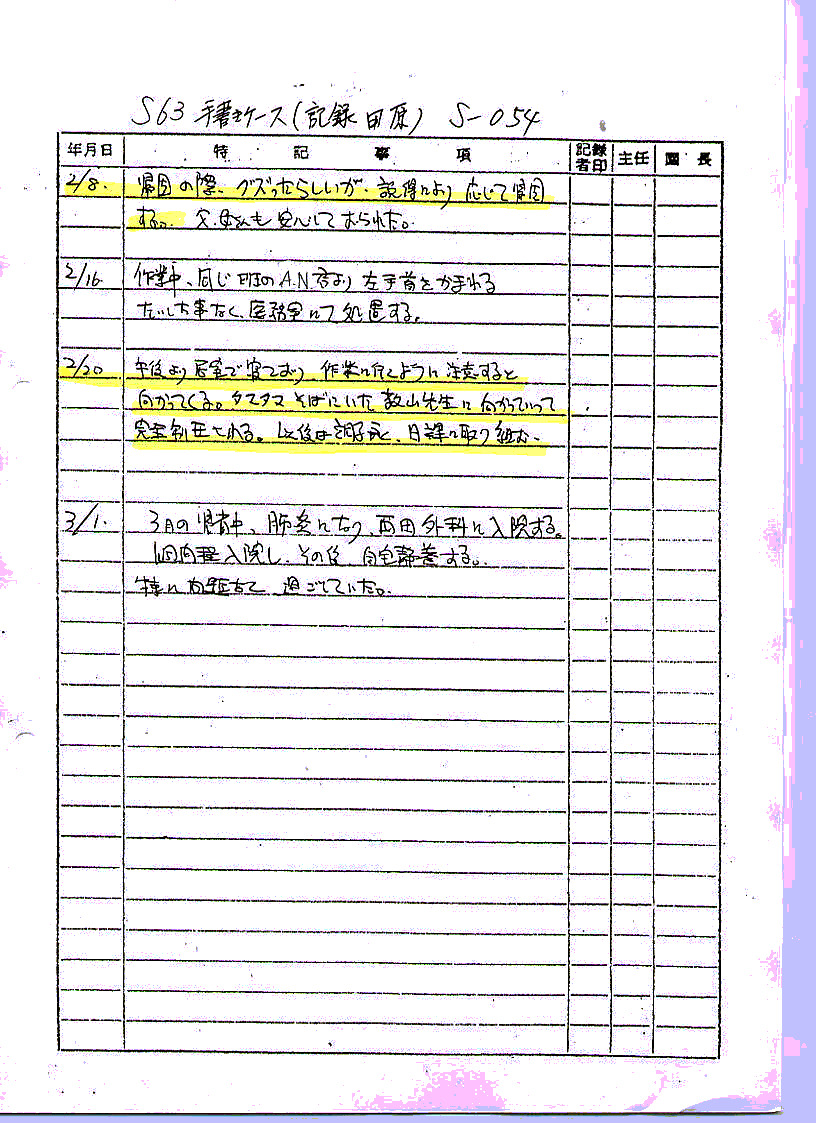 S63 手書きケース(記録 田原) S-054
年月日 特記事項 記録者印 主任 園長
2/8. 帰園の際、グズったらしいが、説得により応じて帰園
する。父、母さんも安心しておられた。
2/16 作業中、同じ班のA.N.君より左手首をかまれる
たいした事なく、医務室にて処置する。
2/20 午後より居室で寝ており、作業に行くように注意すると
向かってくる。タマタマそばにいた 山先生に向かっていって
完全制圧される。以後は調子良く、日課に取り組む。
3/1. 3月の帰省中、肺炎になり、西田外科に入院する。
1週間程入院し、その後、自宅静養する。
特に問題なく過ごしていた。